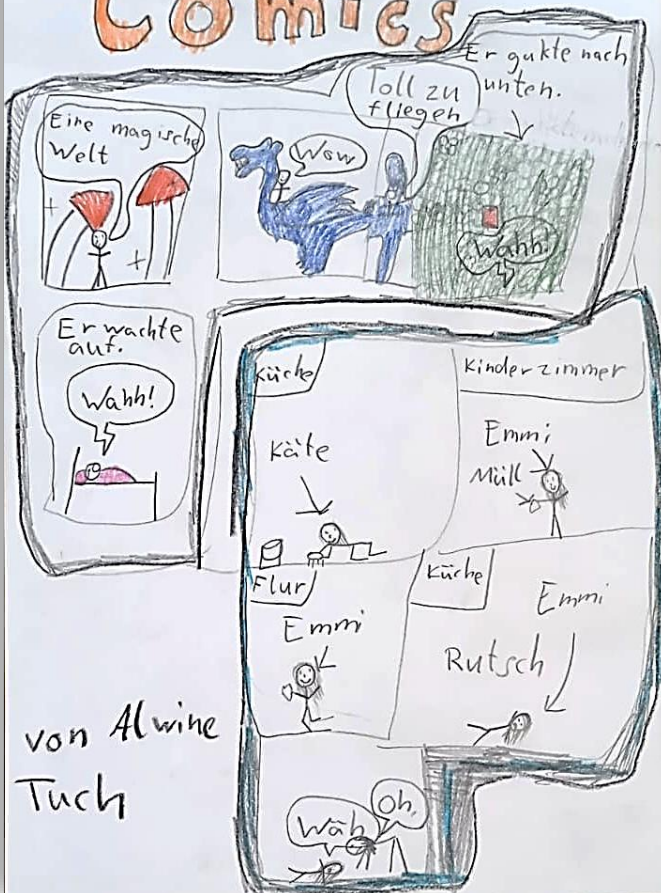 Comics
Eine magische
Welt
Wow
Toll zu
fliegen
Er gukte nach
unten.
Wahh!
Er wachte
auf.
Wahh!
Küche
Käte
Kinderzimmer
Emmi
Müll
Flur
Emmi
Küche
Emmi
Rutsch
Wäh
Oh,
von Alwine
Tuch